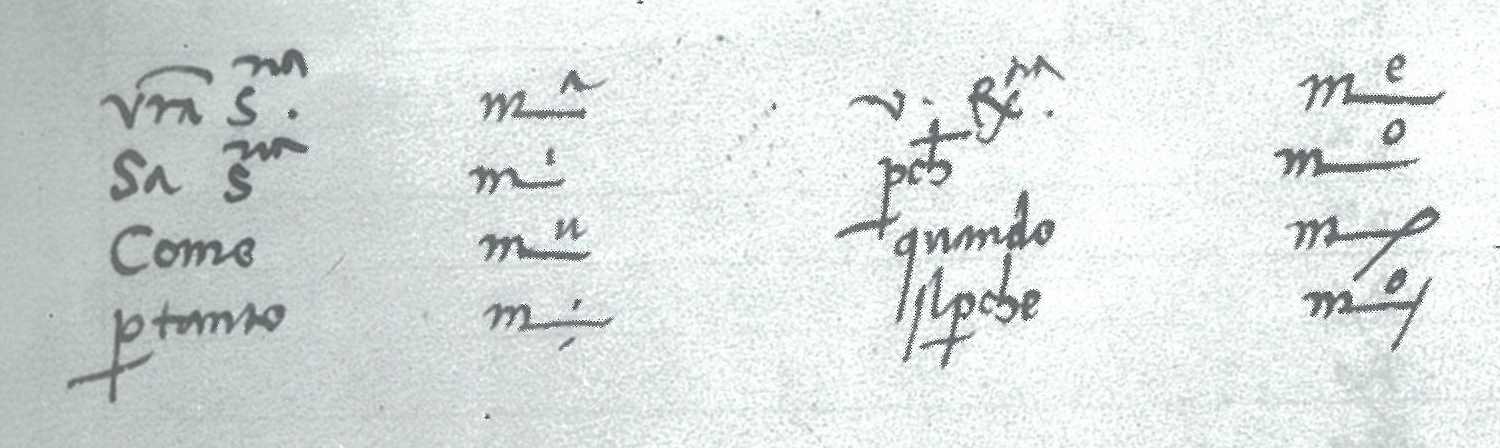 vra S.ria m a v. Rx.ma m e
Sa Sria m i pch m o
Come m u quando m
ptanto m i Ilpche m o